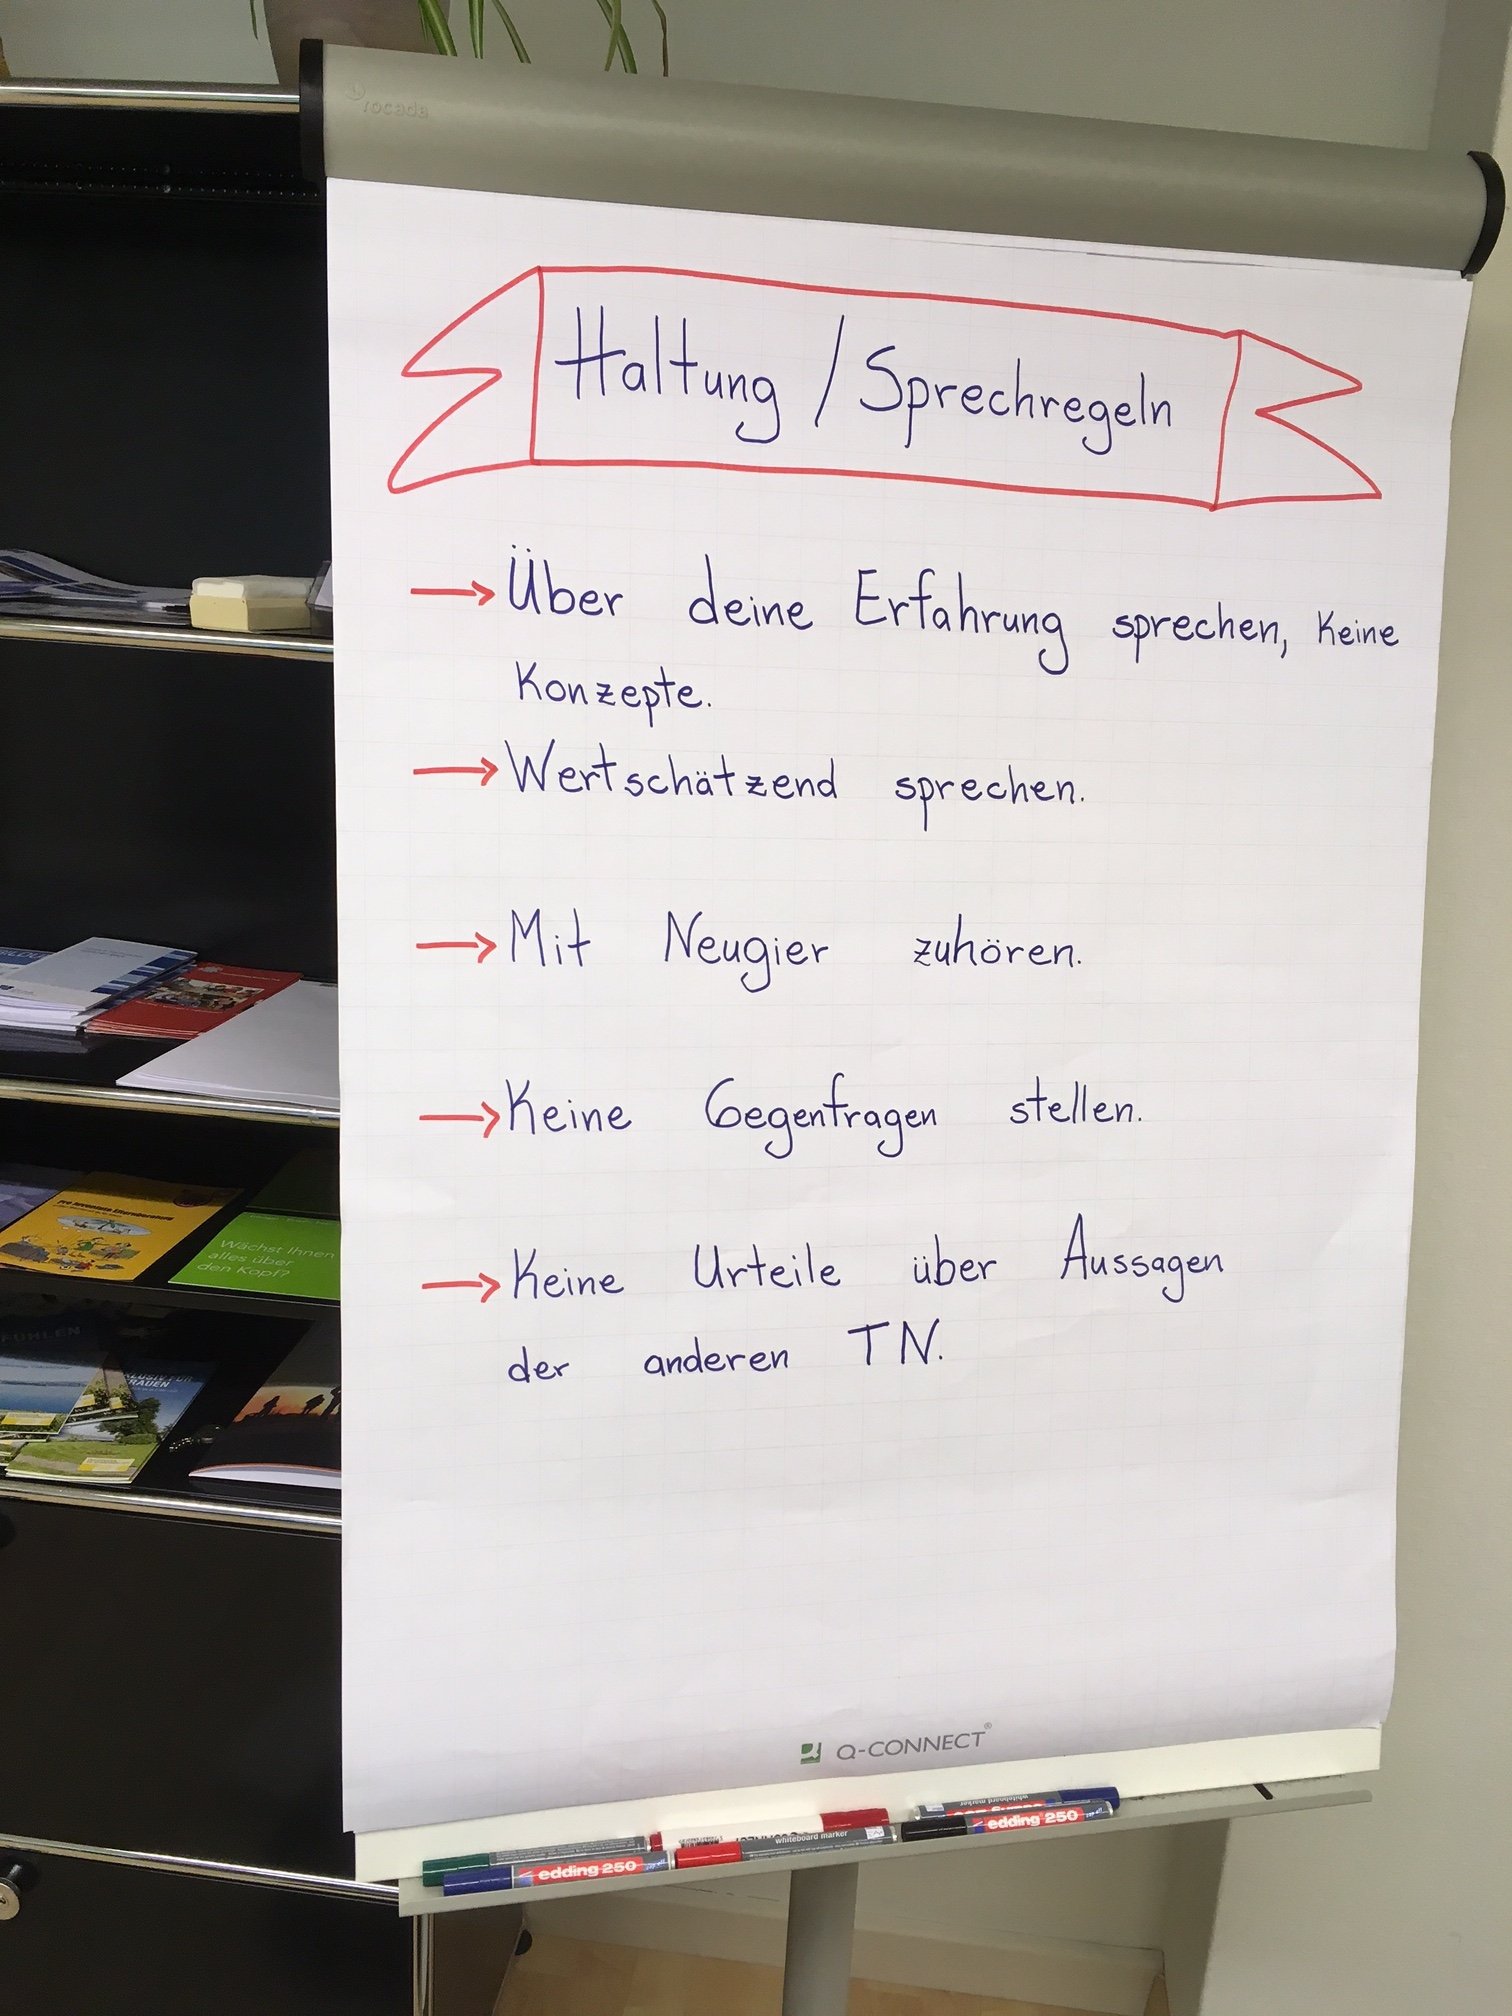 rocada
Haltung / Sprechregeln
→ Über deine Erfahrung sprechen, keine
Konzepte.
→ Wertschätzend sprechen.
→ Mit Neugier zuhören.
→ Keine Gegenfragen stellen.
→ Keine Urteile über Aussagen
der anderen TN.
Pro Juventute Elternberatung
Wächst Ihnen
alles über
den Kopf?
FÜHLEN
RAUEN
Q-CONNECT®
whiteboard marker
edding 250
whiteboard marker
edding 250